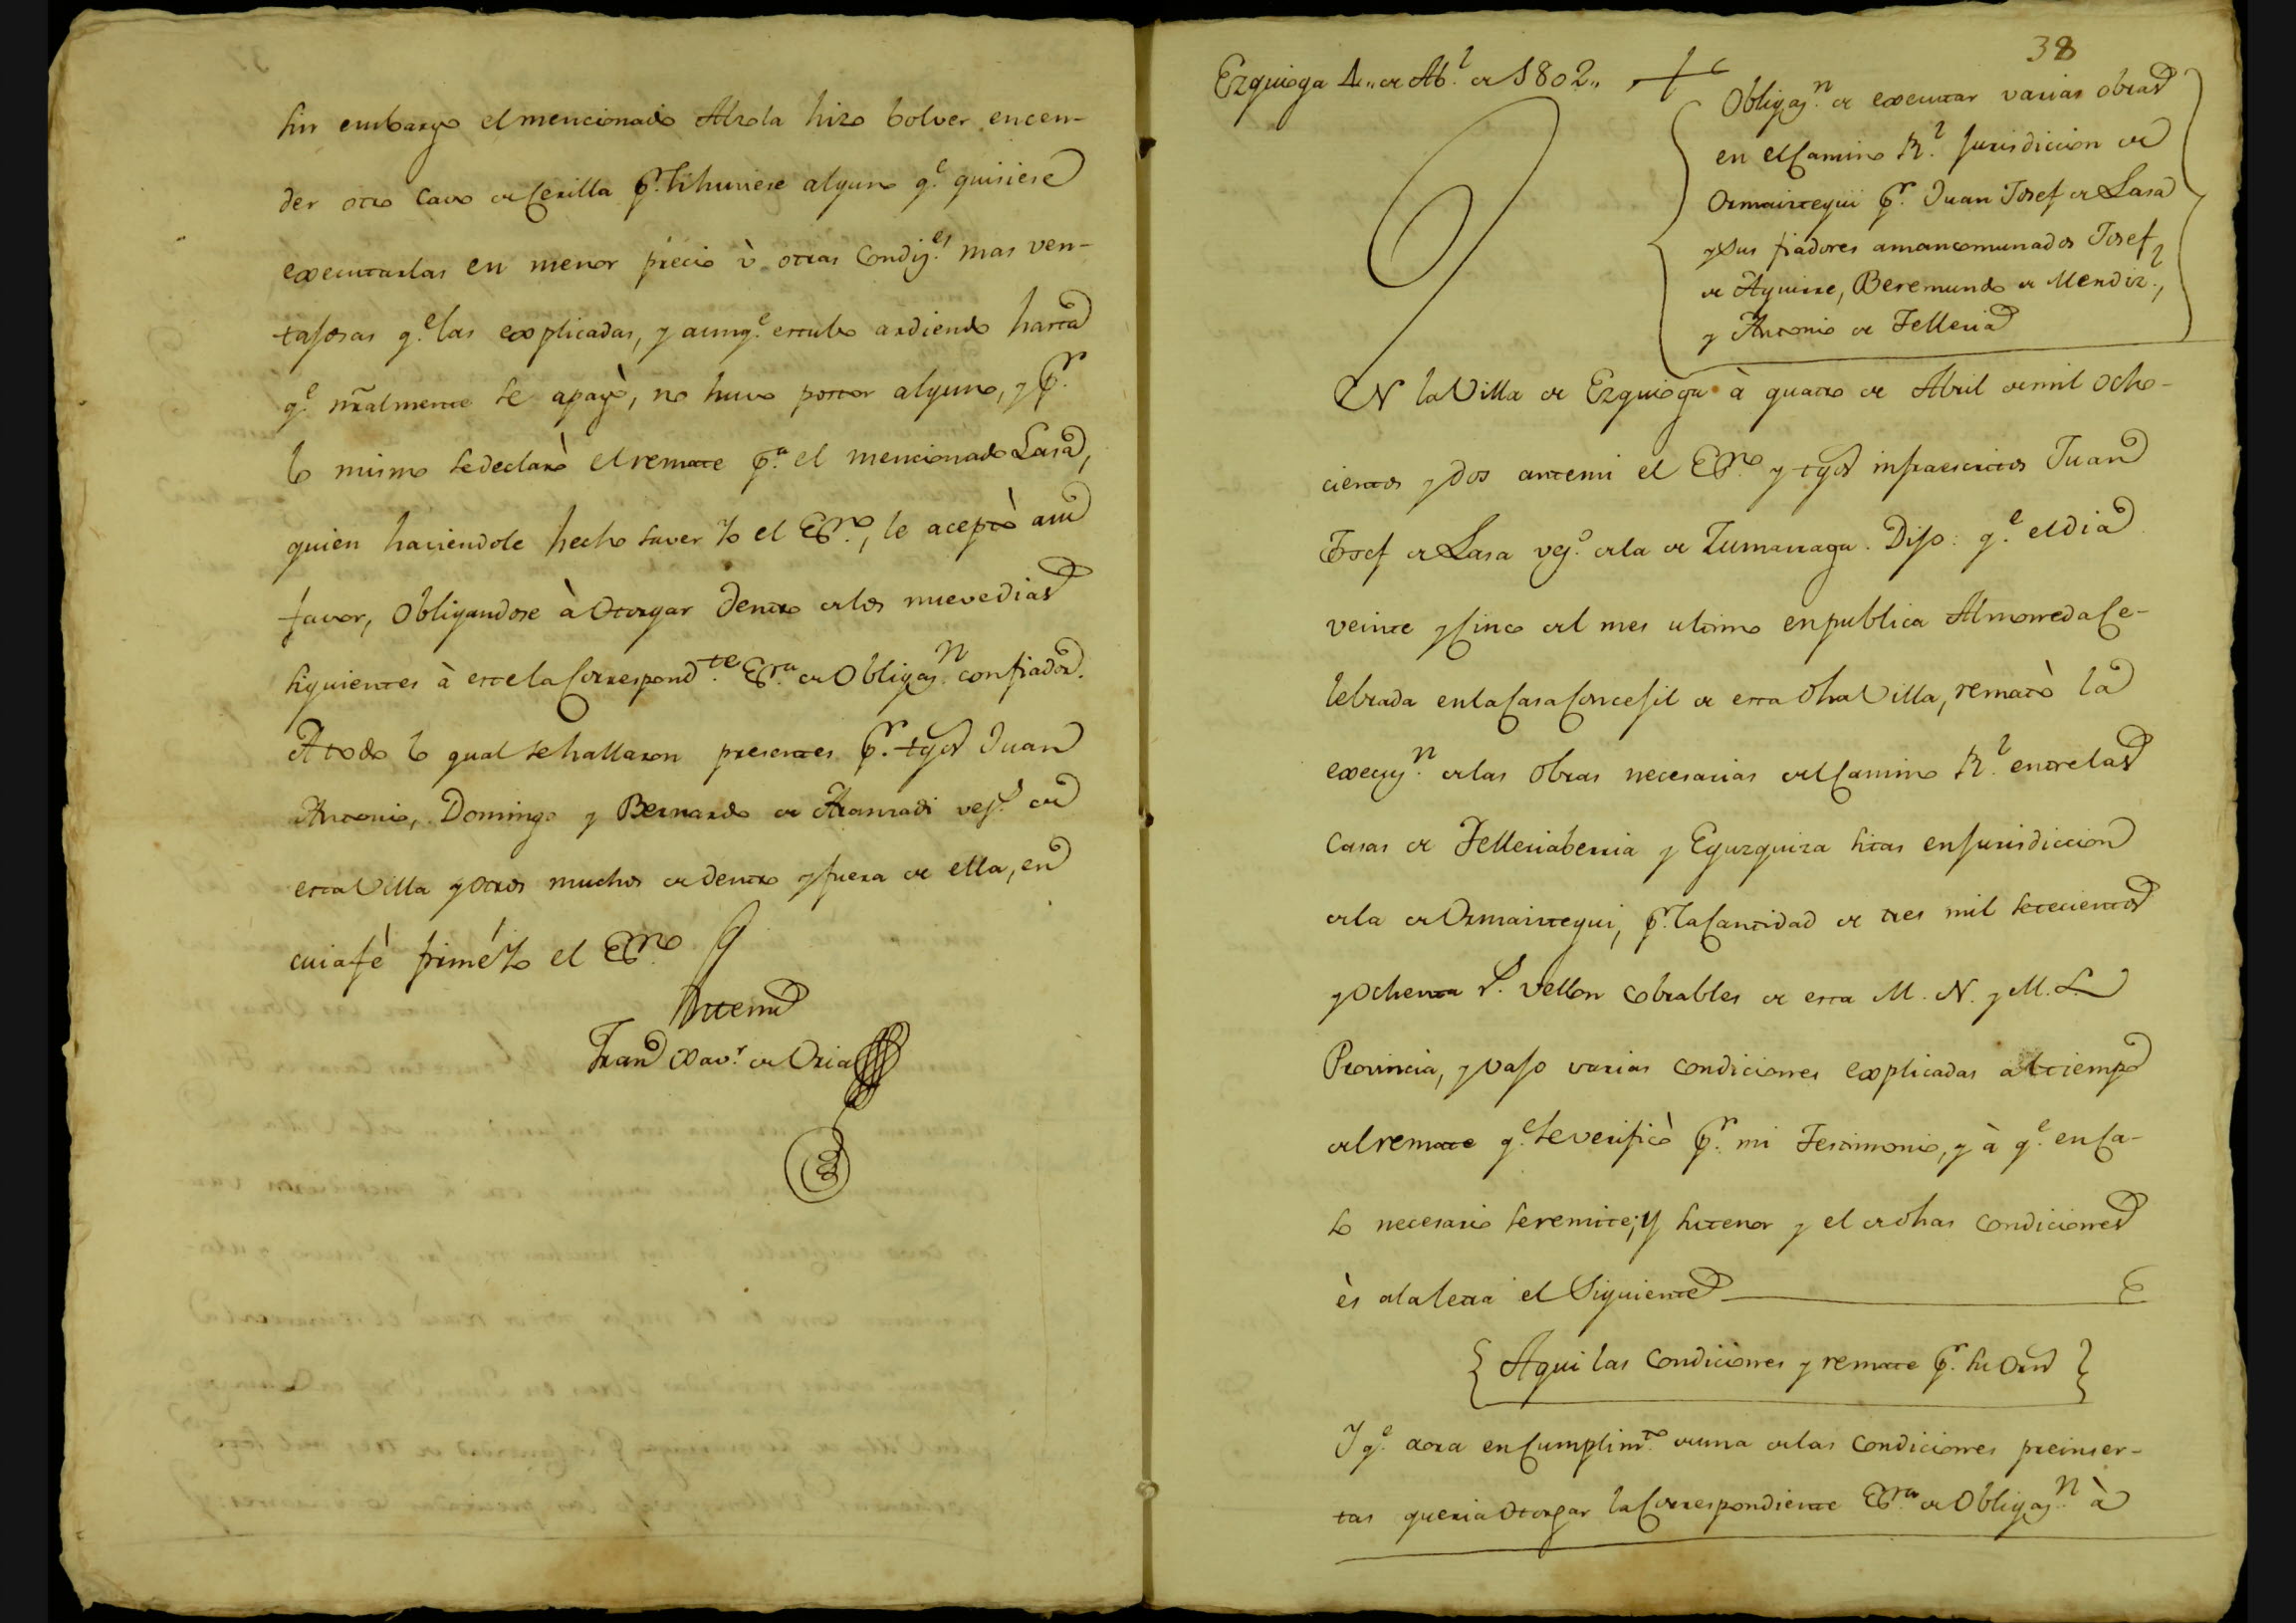 sin embargo el mencionado Alzola hizo bolver encen-
der otro cavo de Cerilla pr. si huviese alguno qe. quisiese
executarlas en menor precio ù otras condizes. mas ven-
tajosas qe. las explicadas, y aunqe. estubo ardiendo hasta
qe. nralmente se apagò, no huvo postor alguno, y pr.
lo mismo se declarò el remate pa. el mencionado Lasa,
quien haviendole hecho saver Yo el Esno., le aceptò a su
favor, obligandose à otorgar dentro de los nueve dias
siguientes à este la Correspondte. Esra. de Obligazn. con fiador.
A todo lo qual se hallaron presentes pr. tgos Juan
Antonio, Domingo y Bernardo de Aramadi vezs. de
esta Villa y otros muchos de dentro y fuera de ella, en
cuia fé firmé Yo el Esno.
Antemi
Fran Xavr. de Oria
38
Ezquioga 4,, de Abl. de 1802,,
Obligazn. de executar varias obras
en el Camino Rl. Jurisdiccion de
Ormaiztegui pr. Juan Josef de Lasa
y sus fiadores amancomunados Josef
de Aguirre, Beremundo de Mendizl.,
y Antonio de Telleria
EN la Villa de Ezquioga à quatro de Abril de mil ocho-
cientos y dos antemi el Esno. y tgos infraescritos Juan
Josef de Lasa vezo. de la de Zumarraga. Dijo: qe. el dia
veinte y Cinco del mes ultimo en publica Almoneda Ce-
lebrada en la Casa Concejil de esta dha Villa, rematò la
execuzn. de las obras necesarias del Camino Rl. entre las
Casas de Telleriaberria y Eguzquiza sitas en Jurisdiccion
de la de Ormaiztegui, pr. la Cantidad de tres mil setecientos
y ochenta rs. vellon cobrables de esta M. N. y M. L.
Provincia, y vajo varias condiciones explicadas al tiempo
del remate qe. se verificò pr. mi Testimonio, y à qe. en Ca-
so necesario se remite; y su tenor y el de dhas condiciones
ès a la letra el Siguiente
Aqui las condiciones y remate pr. su orn
Y qe. aora en Cumplimto. de una de las condiciones preinser-
tas queria otorgar la Correspondiente Esra. de Obligazn. à